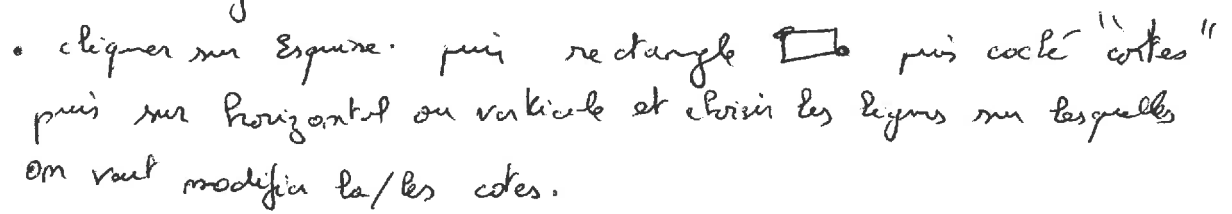 • cliquer sur Esquisse. puis rectangle puis coché "cotes"
puis sur horizontal ou verticale et choisir les lignes sur lesquelles
on veut modifier la/les cotes.